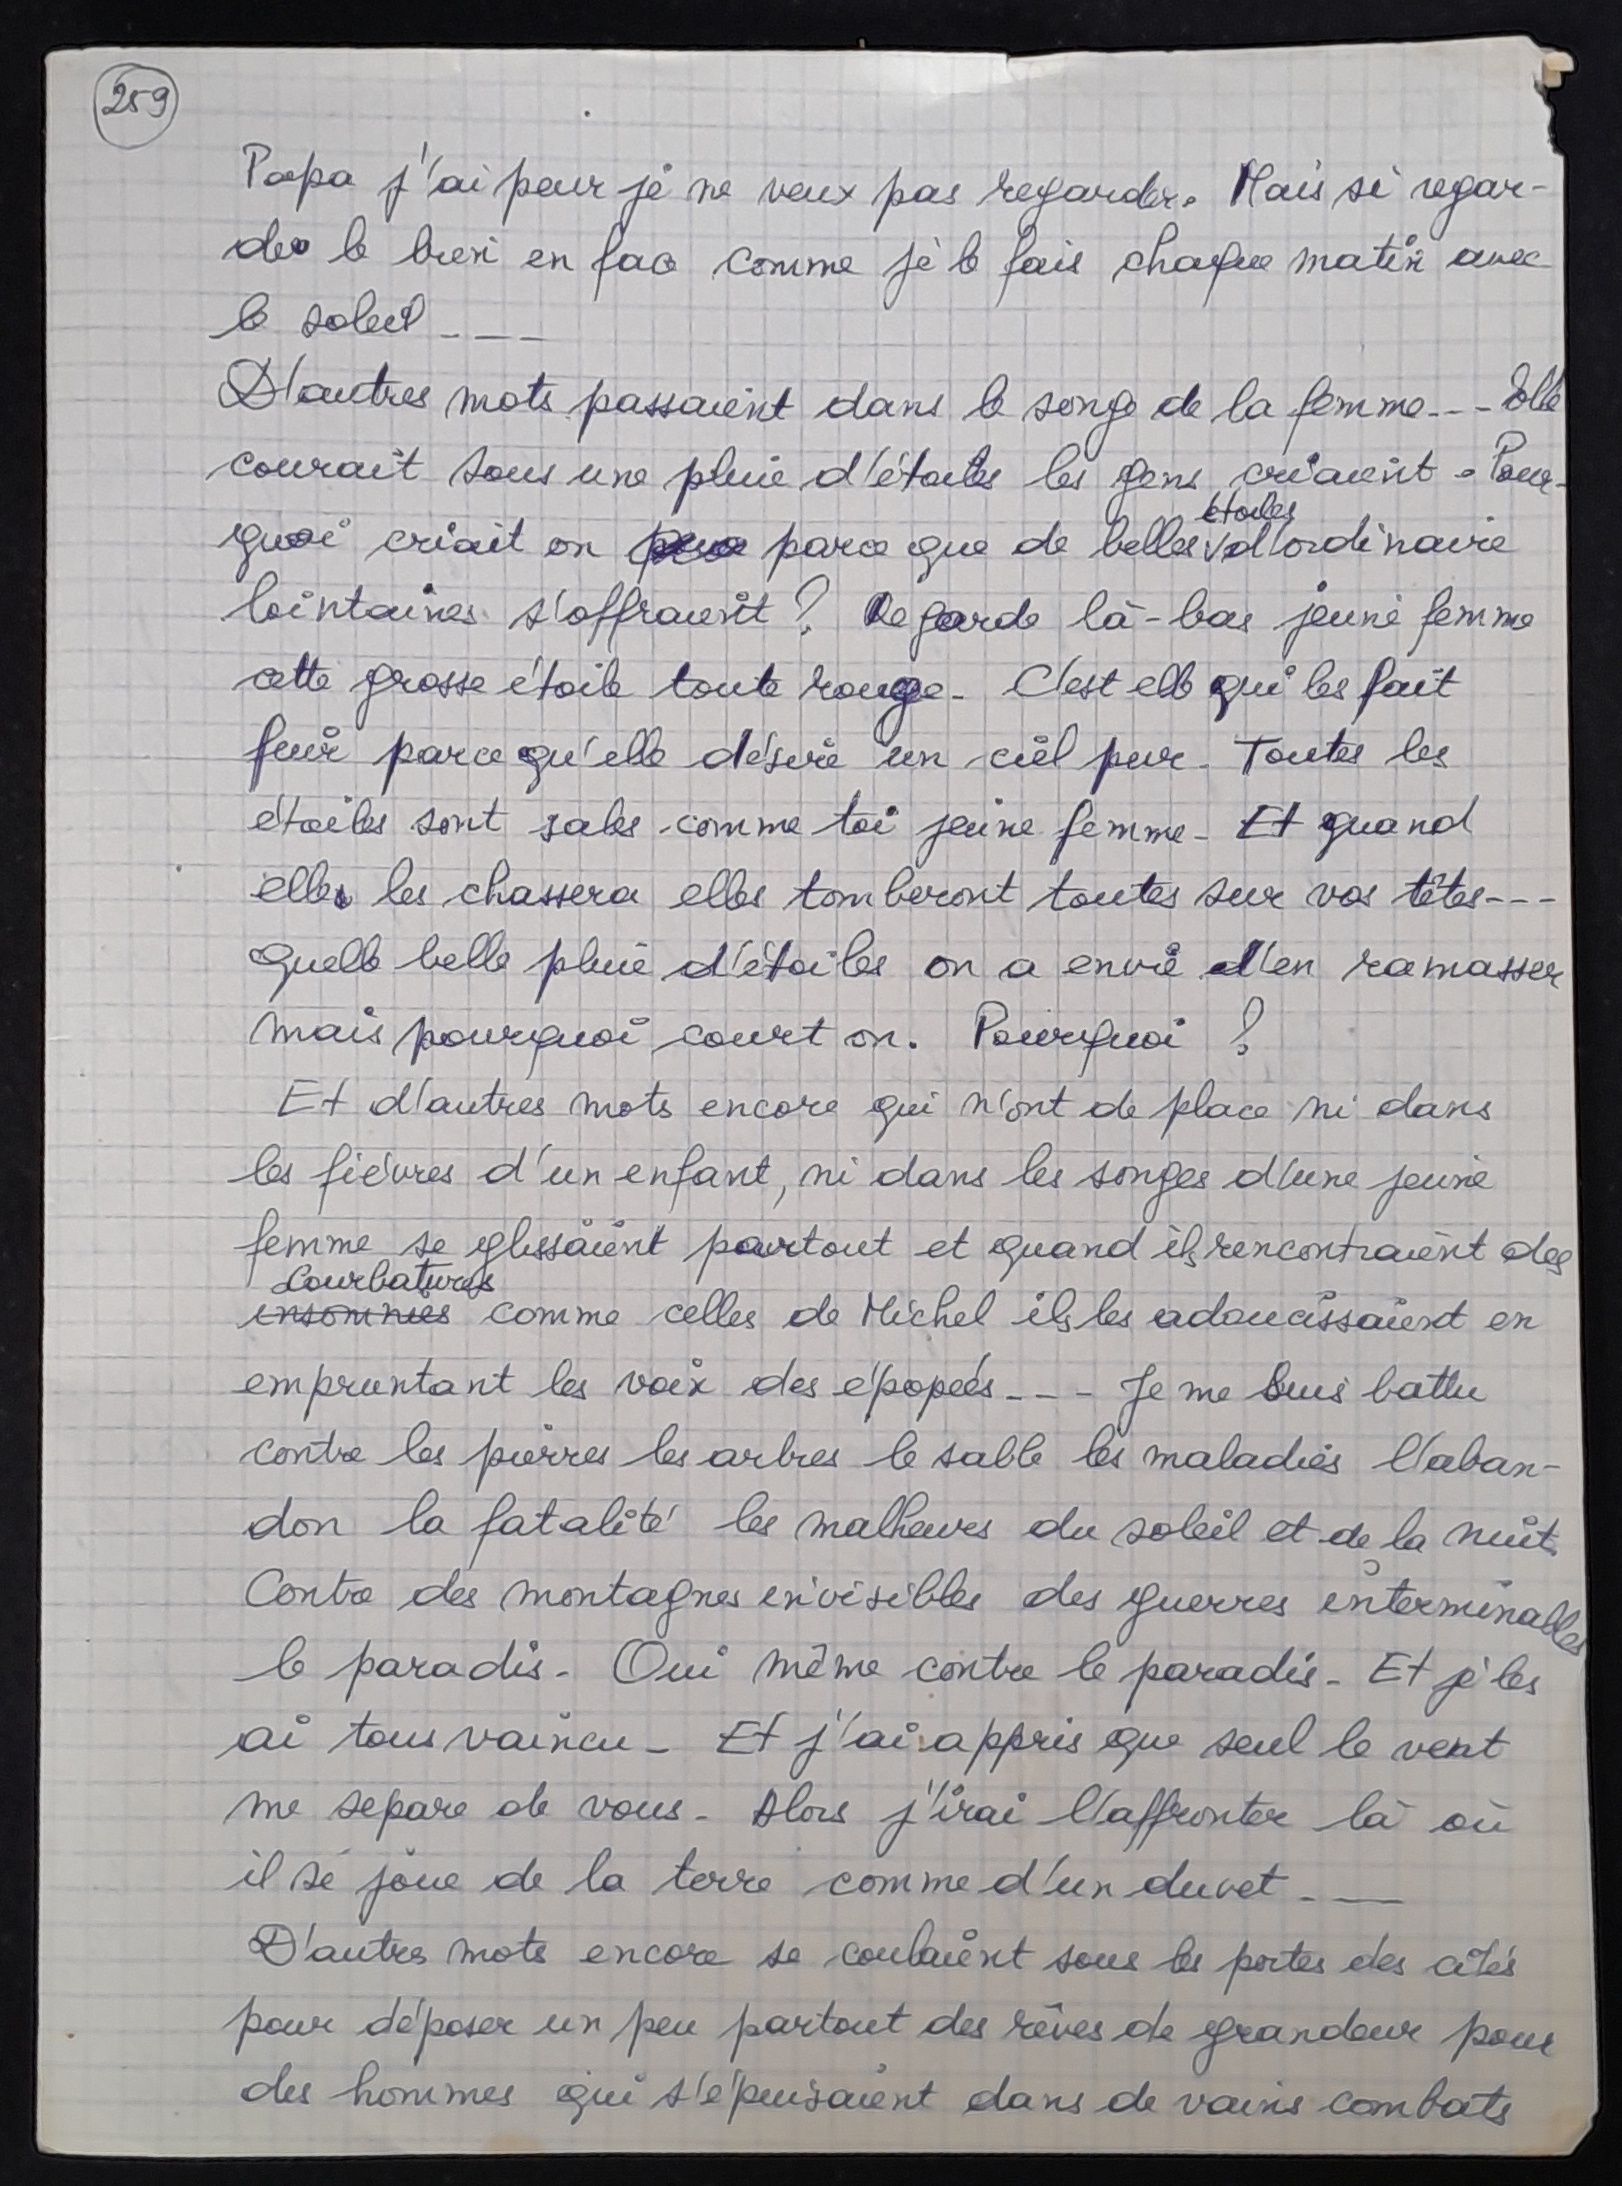 259
Papa j'ai peur je ne veux pas regarder. Mais si regar-
de le bien en face comme je le fais chaque matin avec
le soleil ---
D'autres mots passaient dans le songe de la femme --- Elle
courait sous une pluie d'étoiles les gens criaient - Pour-
quoi criait on parce que de belles étoiles d'ordinaire
lointaines s'offraient ? Regarde là-bas jeune femme
cette grosse étoile toute rouge - C'est elle qui les fait
fuir parce qu'elle désire un ciel pur - Toutes les
étoiles sont sales comme toi jeune femme - Et quand
elle les chassera elles tomberont toutes sur vos têtes ---
Quelle belle pluie d'étoiles on a envie d'en ramasser
mais pourquoi court on. Pourquoi ?
Et d'autres mots encore qui n'ont de place ni dans
les fièvres d'un enfant, ni dans les songes d'une jeune
femme se glissaient partout et quand ils rencontraient des
courbatures
insomnies comme celles de Michel ils les adoucissaient en
empruntant les voix des épopées --- Je me suis battu
contre les pierres les arbres le sable les maladies l'aban-
don la fatalité les malheurs du soleil et de la nuit.
Contre des montagnes invisibles des guerres interminables
le paradis - Oui même contre le paradis - Et je les
ai tous vaincu - Et j'ai appris que seul le vent
me separe de vous - Alors j'irai l'affronter là où
il se joue de la terre comme d'un duvet ---
D'autres mots encore se coulaient sous les portes des cités
pour déposer un peu partout des rêves de grandeur pour
des hommes qui s'épuisaient dans de vains combats